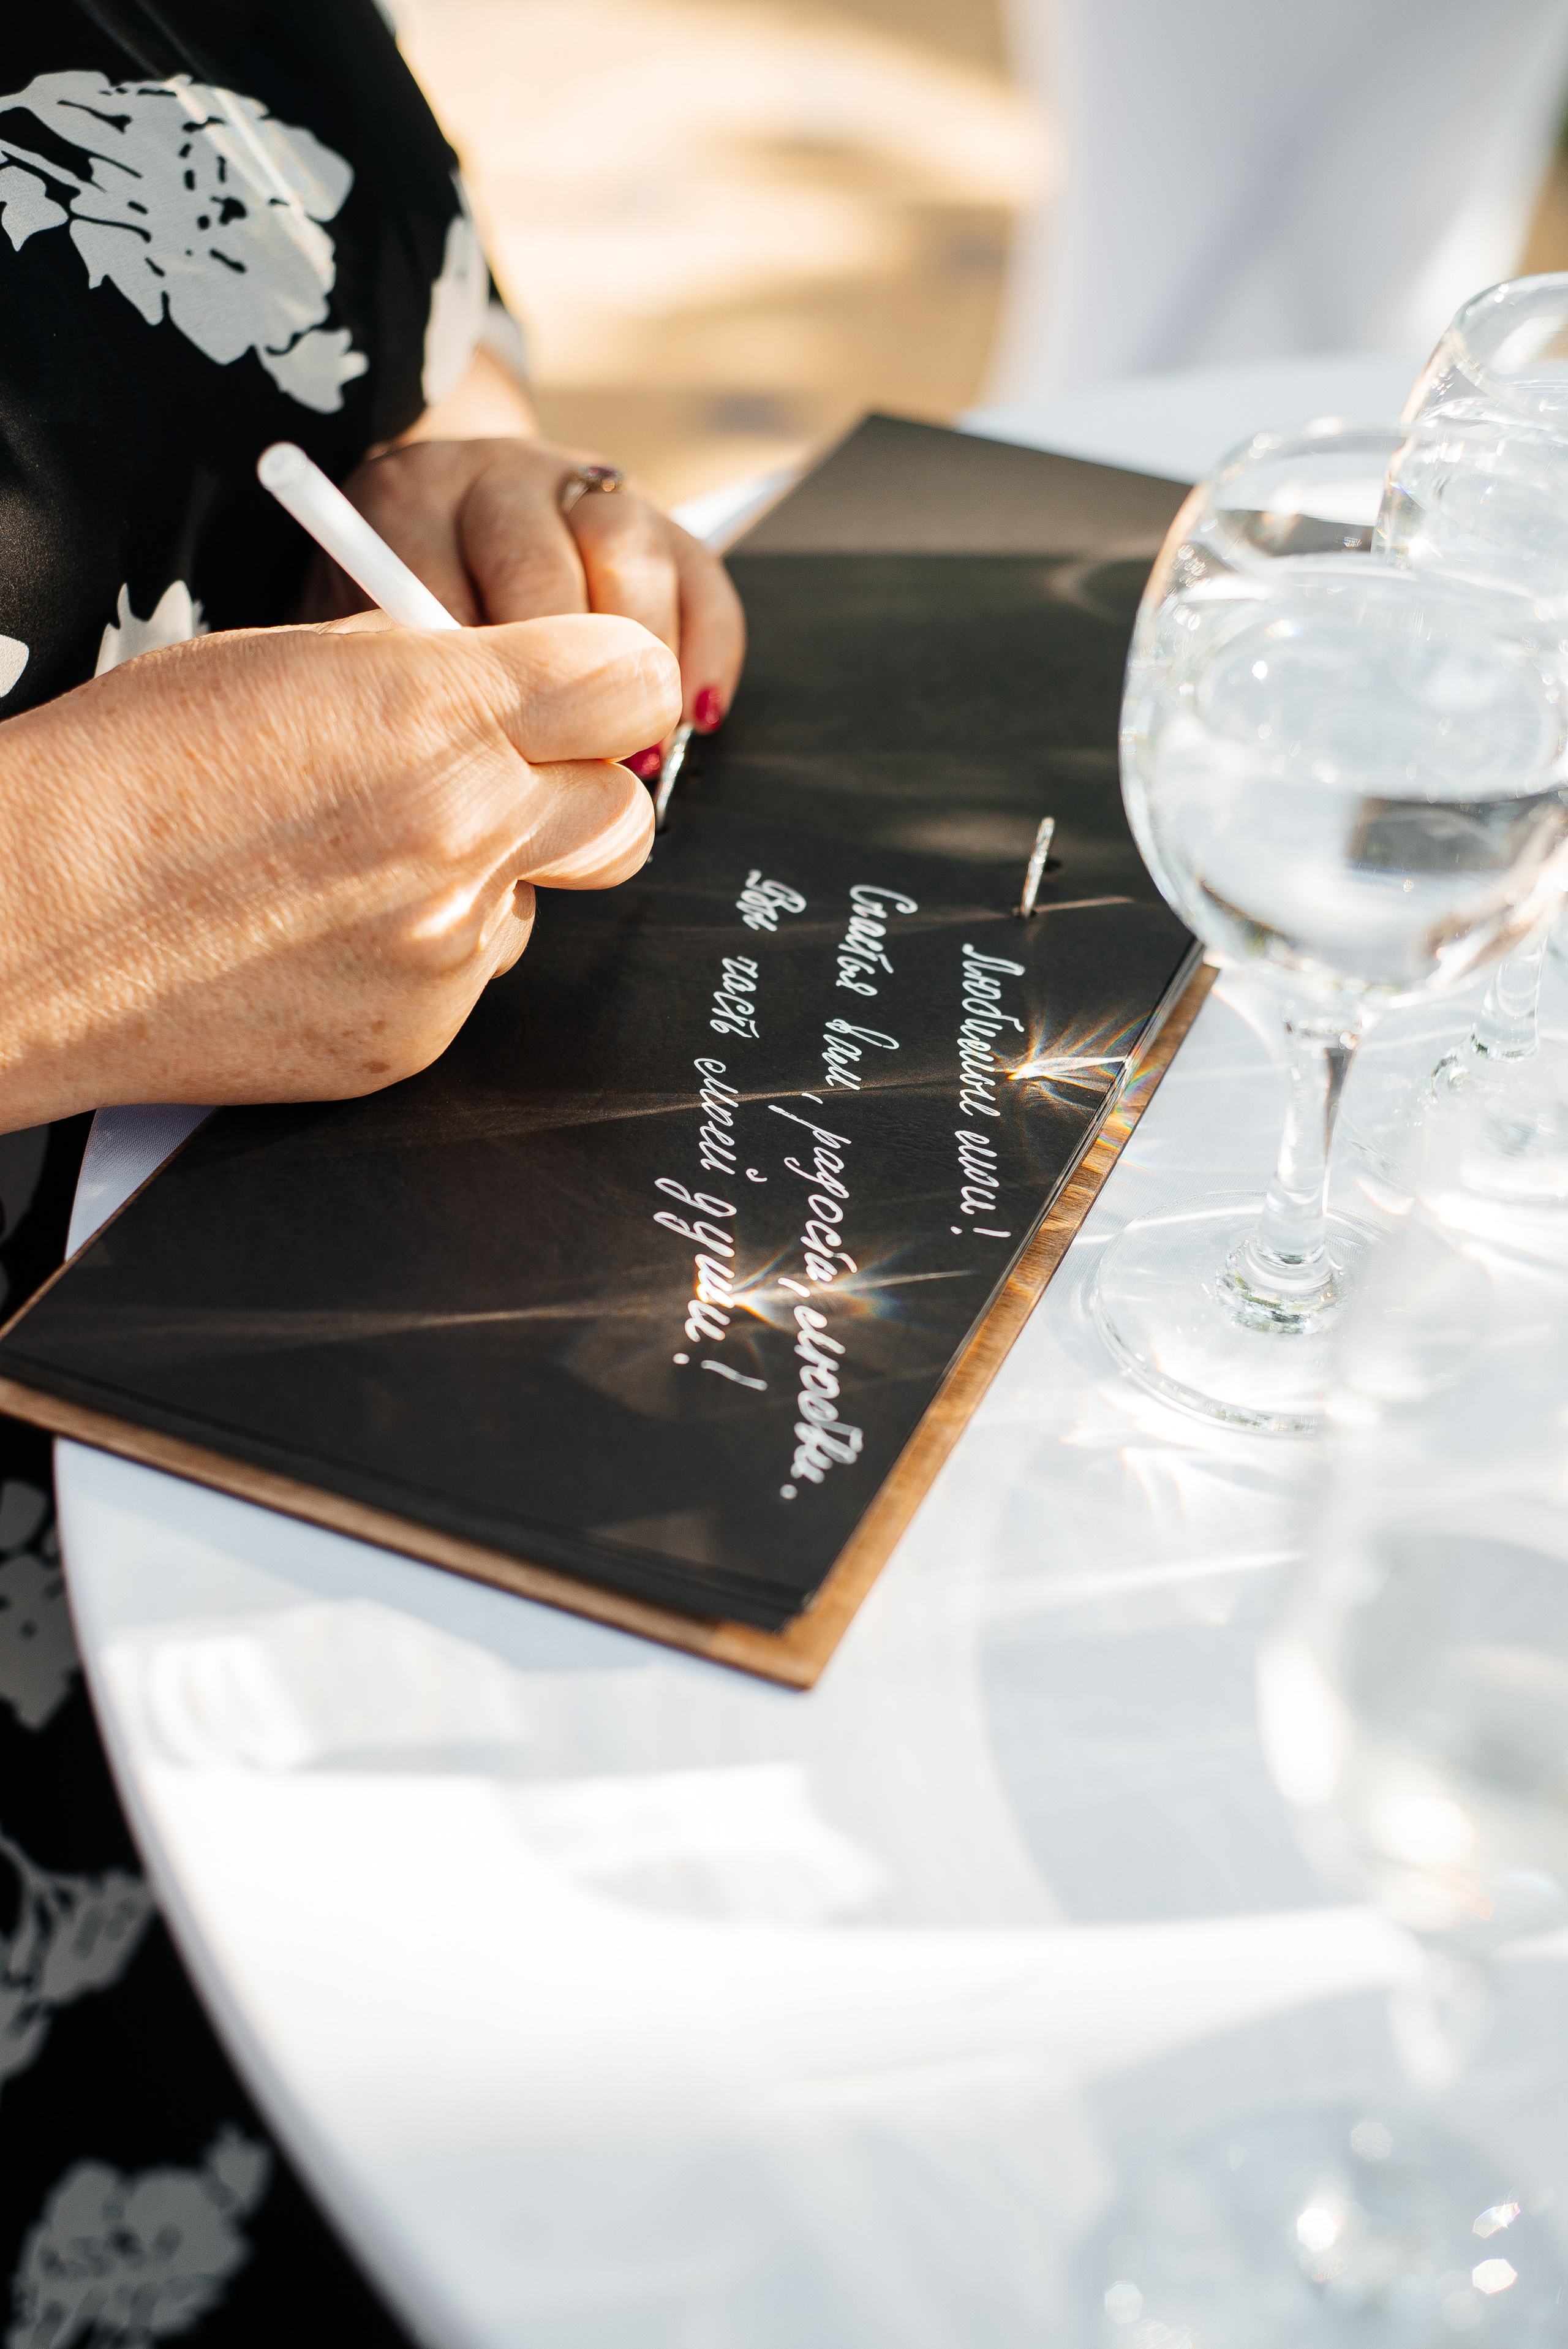 Любимые мои!
Счастья вам, радости, любви.
Вы часть моей души!